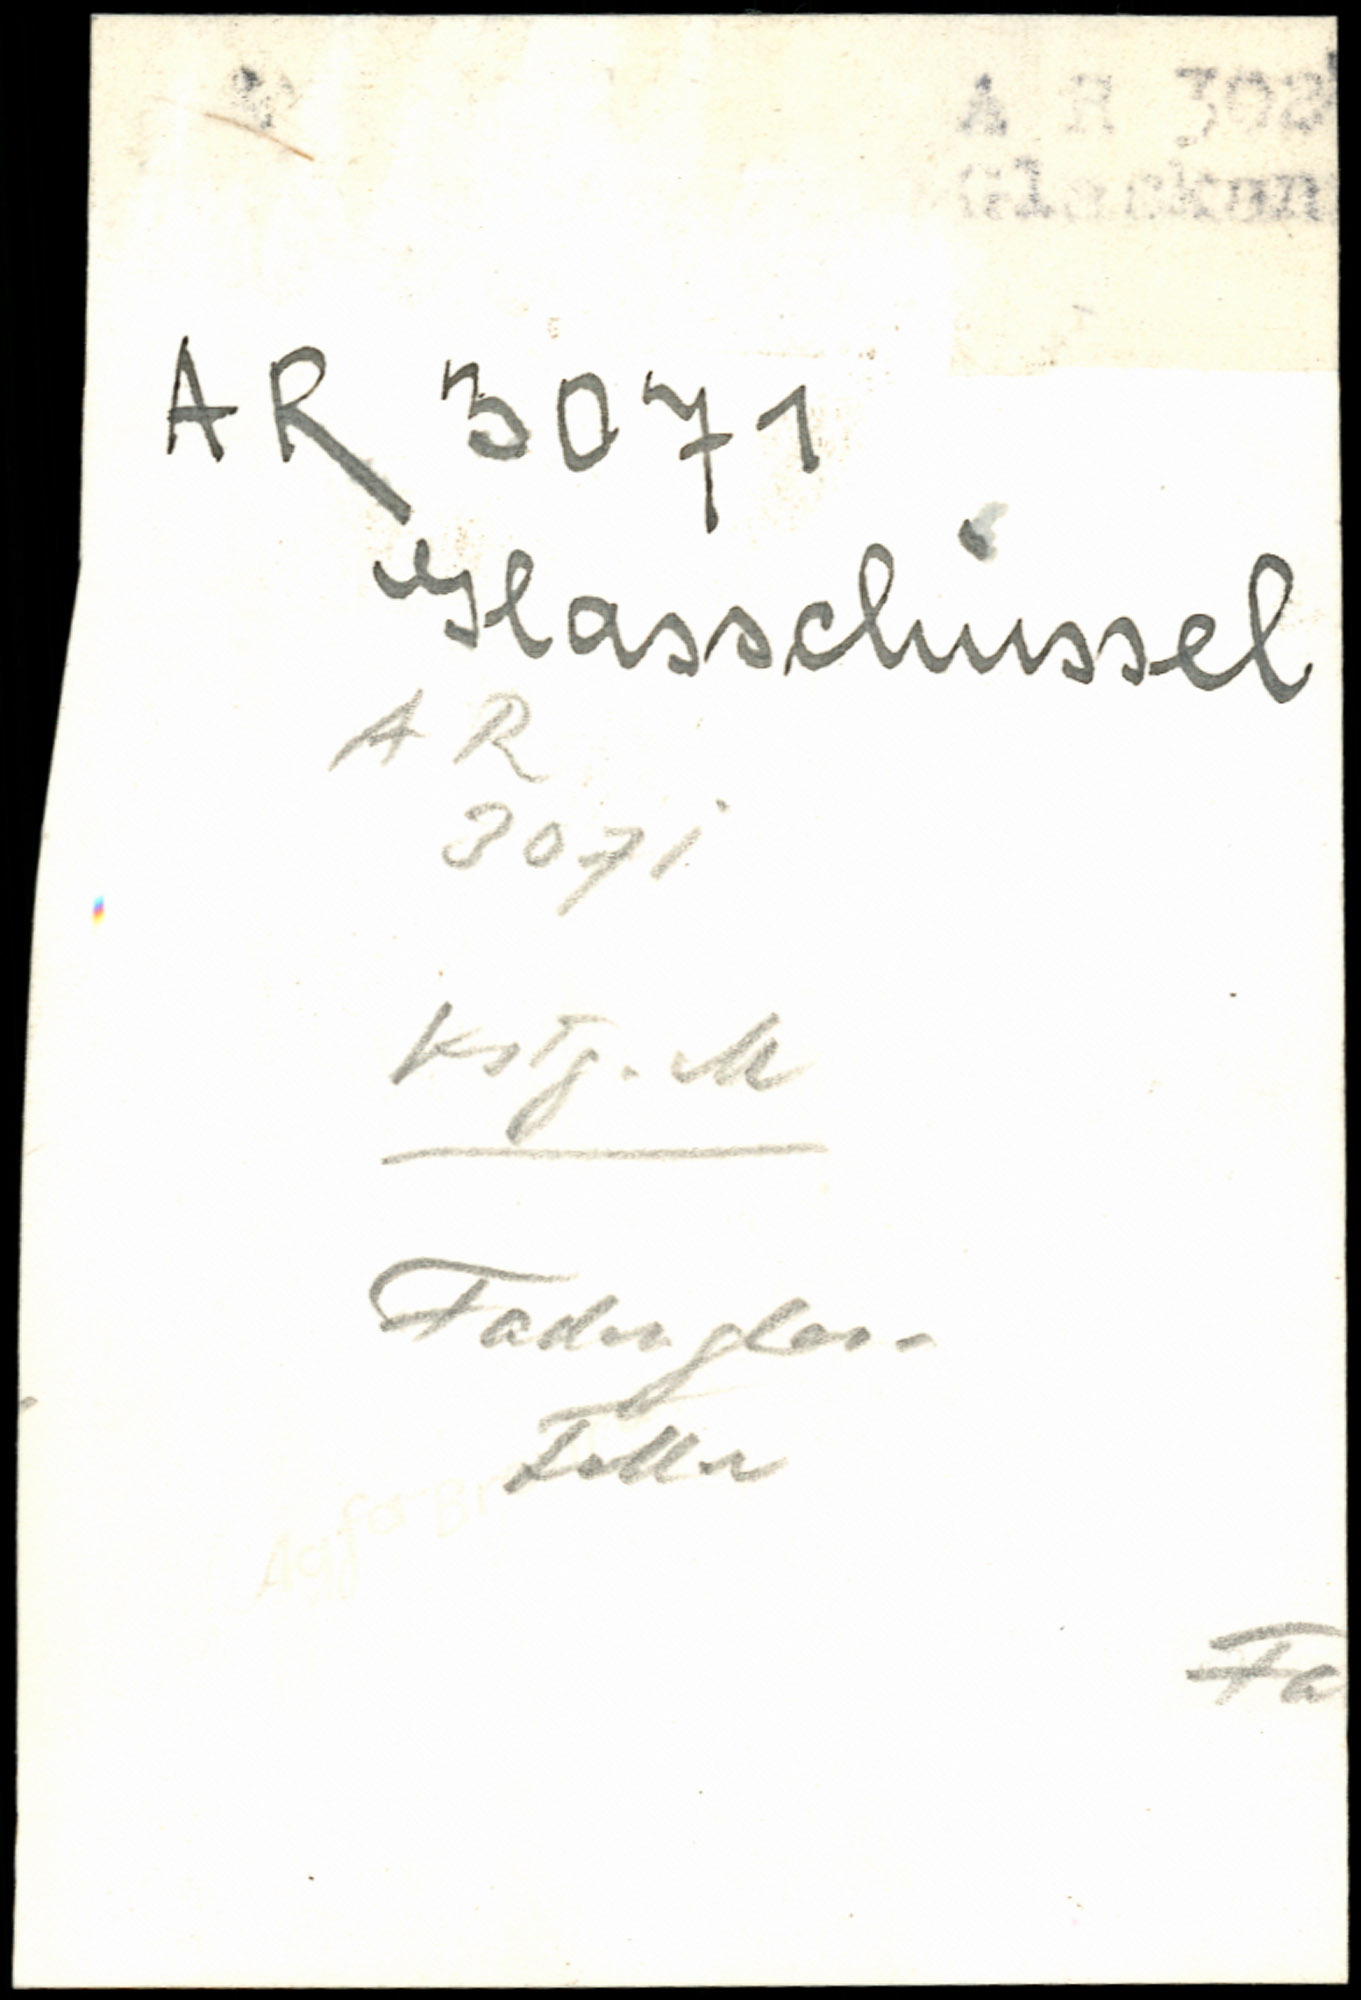 A R 308
AR 3071
Glasschüssel
A R
3071
Kstg. M
Fadenglas-
Teller
Agfa Br
Fa